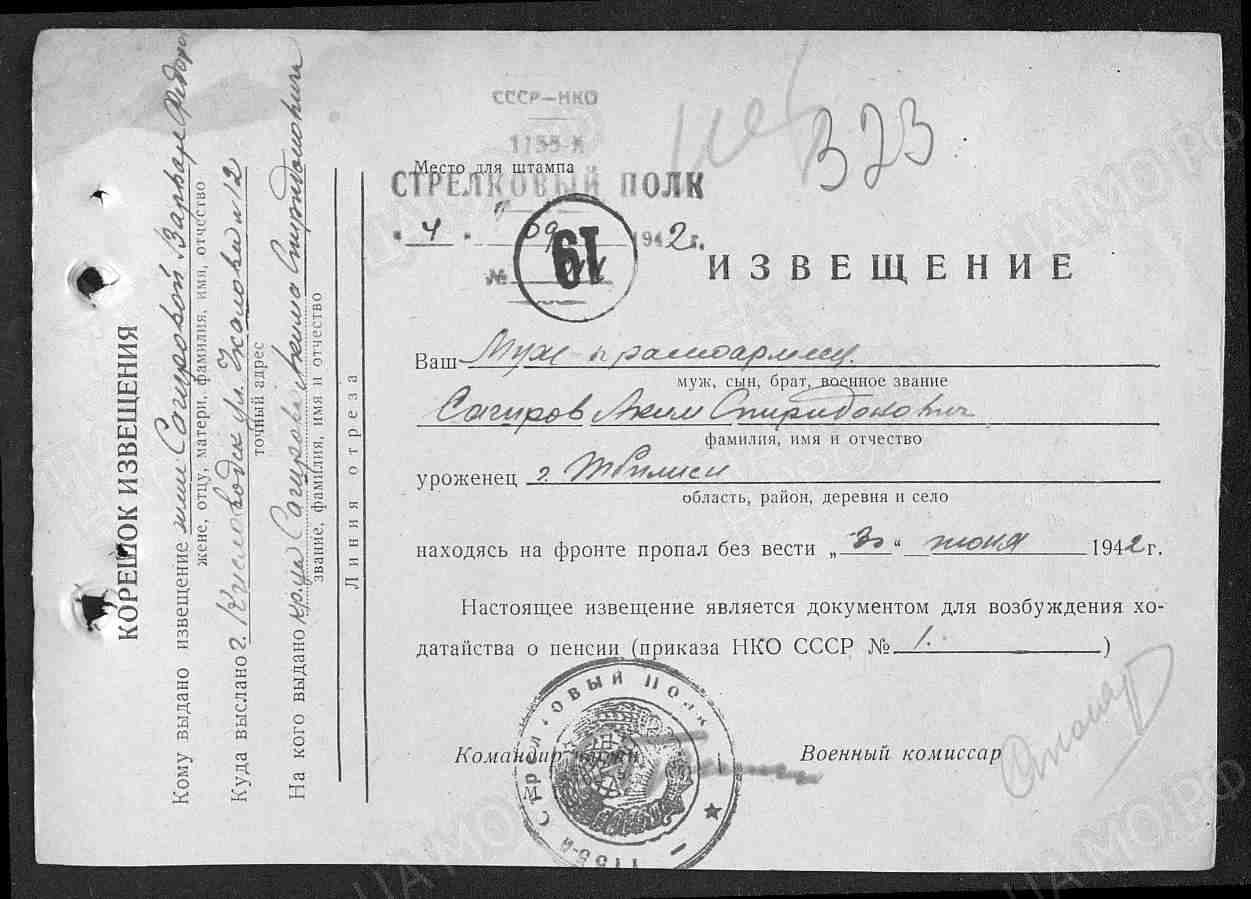 СССР—НКО
1155-й
Место для штампа
СТРЕЛКОВЫЙ ПОЛК
"4" 09 1942г.
№
19
323
ИЗВЕЩЕНИЕ
Ваш Муж красноармеец
муж, сын, брат, военное звание
Сагиров Аким Спиридонович
фамилия, имя и отчество
уроженец г. Тбилиси
область, район, деревня и село
находясь на фронте пропал без вести „30“ июня 1942г.
Настоящее извещение является документом для возбуждения хо-
датайства о пенсии (приказа НКО СССР № )
Командир части
Военный комиссар
1155-й Стрелковый Полк
КОРЕШОК ИЗВЕЩЕНИЯ
Кому выдано извещение Сагировой Варваре
жене, отцу, матери, фамилия, имя, отчество
Куда выслано г. Кисловодск ул. 12
точный адрес
На кого выдано кр-ца Сагирова Акима Спиридоновича
звание, фамилия, имя и отчество
Линия отреза
ЦАМО.РФ